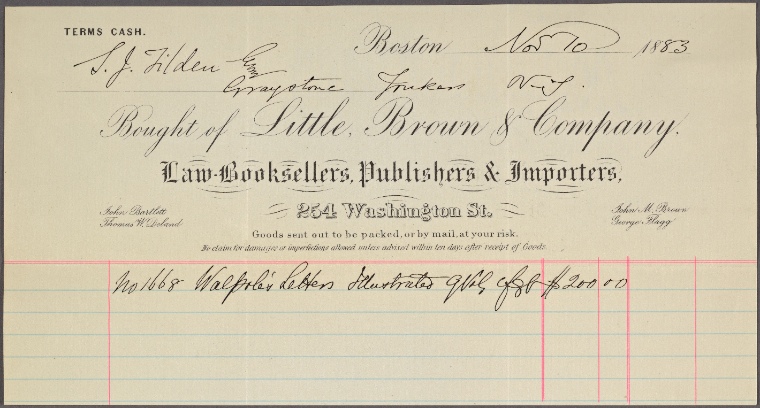 TERMS CASH.
Boston Nov 10 1883
S. J. Tilden
Graystone Yonkers N.Y.
Bought of Little, Brown & Company.
Law-Booksellers, Publishers & Importers,
254 Washington St.
John Bartlett
Thomas W. Deland
John M. Brown
George Flagg
Goods sent out to be packed, or by mail, at your risk.
No claim for damages or imperfections allowed unless advised within ten days after receipt of Goods.
No 1668 Walpole's Letters Illustrated 9 Vols $200 00